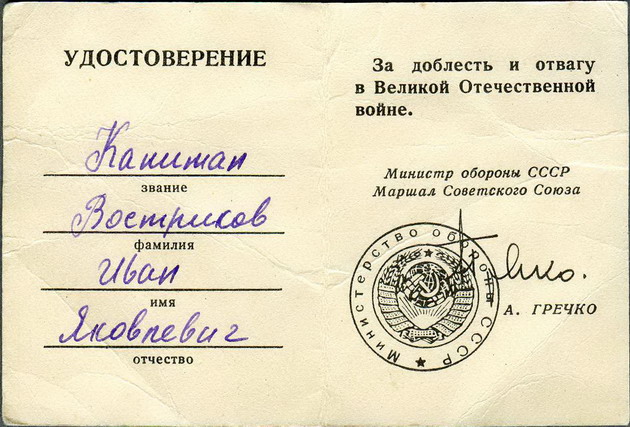 УДОСТОВЕРЕНИЕ
Капитан
звание
Востриков
фамилия
Иван
имя
Яковлевич
отчество
За доблесть и отвагу
в Великой Отечественной
войне.
Министр обороны СССР
Маршал Советского Союза
Министерство обороны СССР
А. ГРЕЧКО